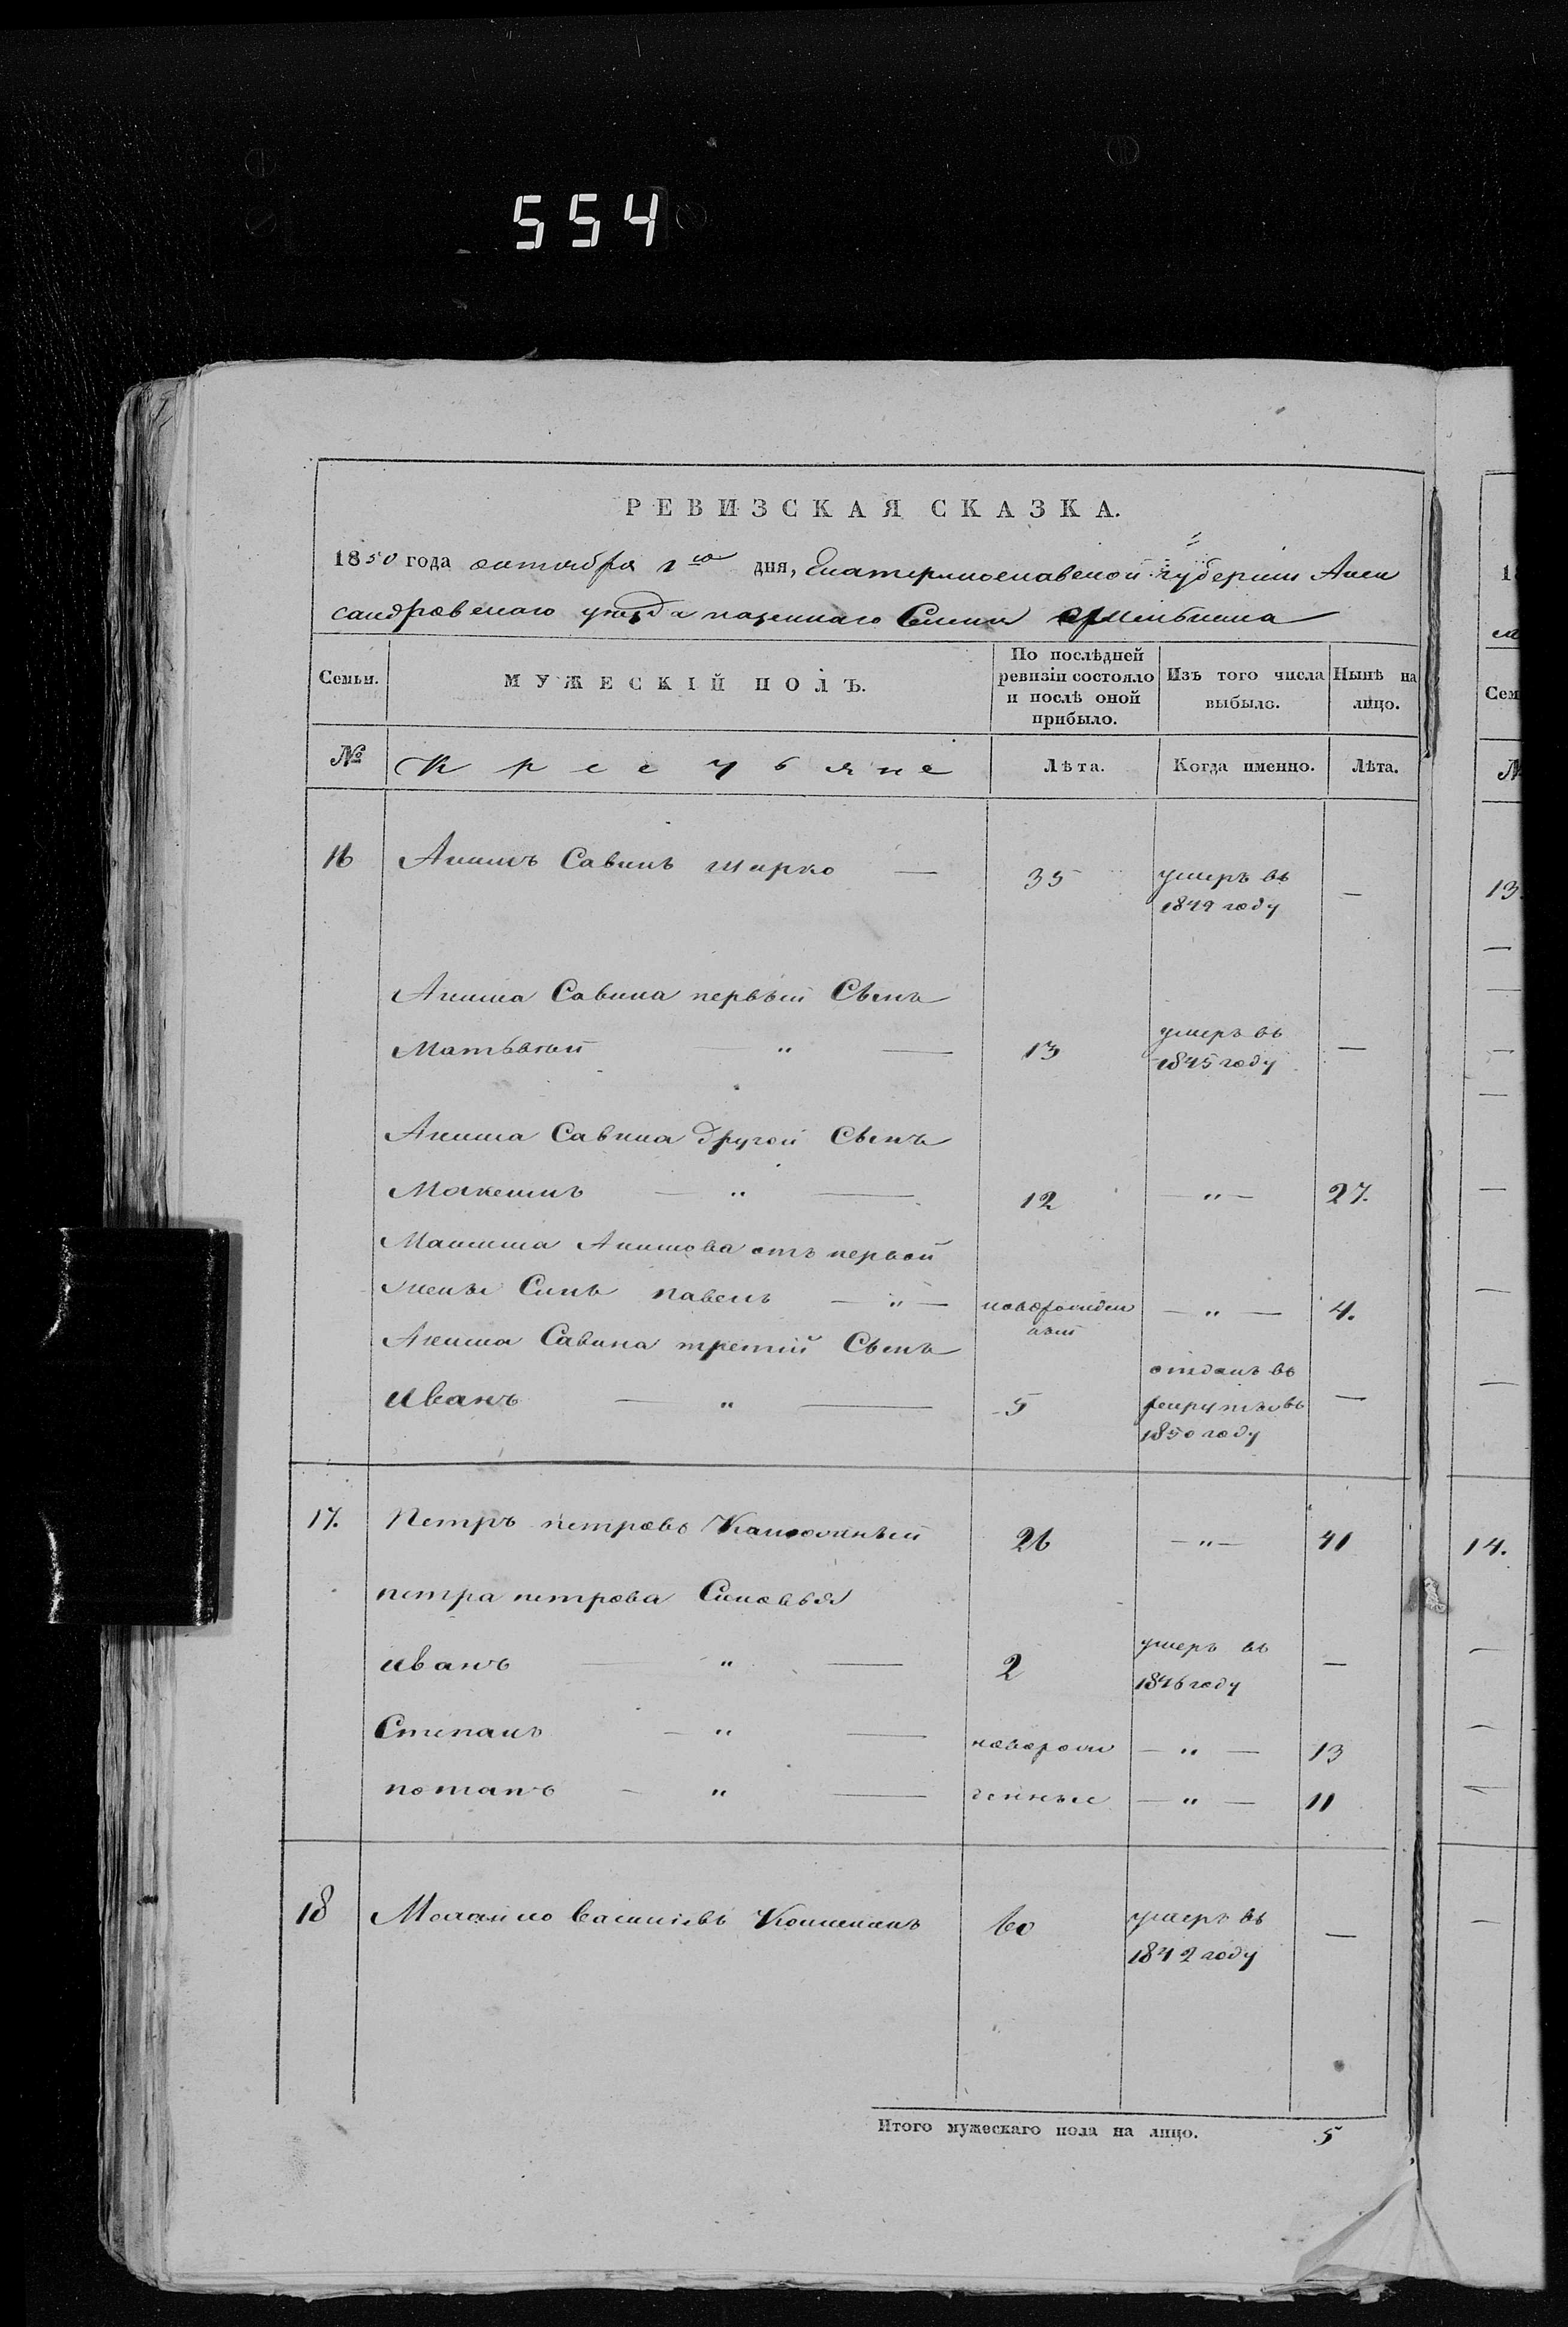 554
РЕВИЗСКАЯ СКАЗКА.
1850 года октября 1го дня, Екатеринославской губернии Алек
сандровскаго уезда казеннаго Селения
Семьи.
МУЖЕСКІЙ ПОЛЪ.
По послѣдней ревизіи состояло и послѣ оной прибыло.
Изъ того числа выбыло.
Нынѣ на лицо.
№ Крестьяне Лѣта. Когда именно. Лѣта.
16 Акимъ Савинъ Шарко — 35 умеръ въ —
1849 году
Акима Савина первый Сынъ
Матвѣй — " — 13 умеръ въ —
1845 году
Акима Савина другой Сынъ
Максимъ — " — 12 " — 27.
Максима Акимова отъ первой
жены Сынъ павелъ — " — новорожден — " — 4.
ный
Акима Савина третий Сынъ
Иванъ — " — 5 отданъ въ —
рекруты въ
1850 году
17. Петръ петровъ 26 — " — 41
петра петрова Сыновья
иванъ — " — 2 умеръ въ —
1846 году
Степанъ — " — новорож — " — 13
потапъ — " — денные — " — 11
18 60 умеръ въ —
1842 году
Итого мужескаго пола на лицо. 5
18
Сем
№
13.
14.